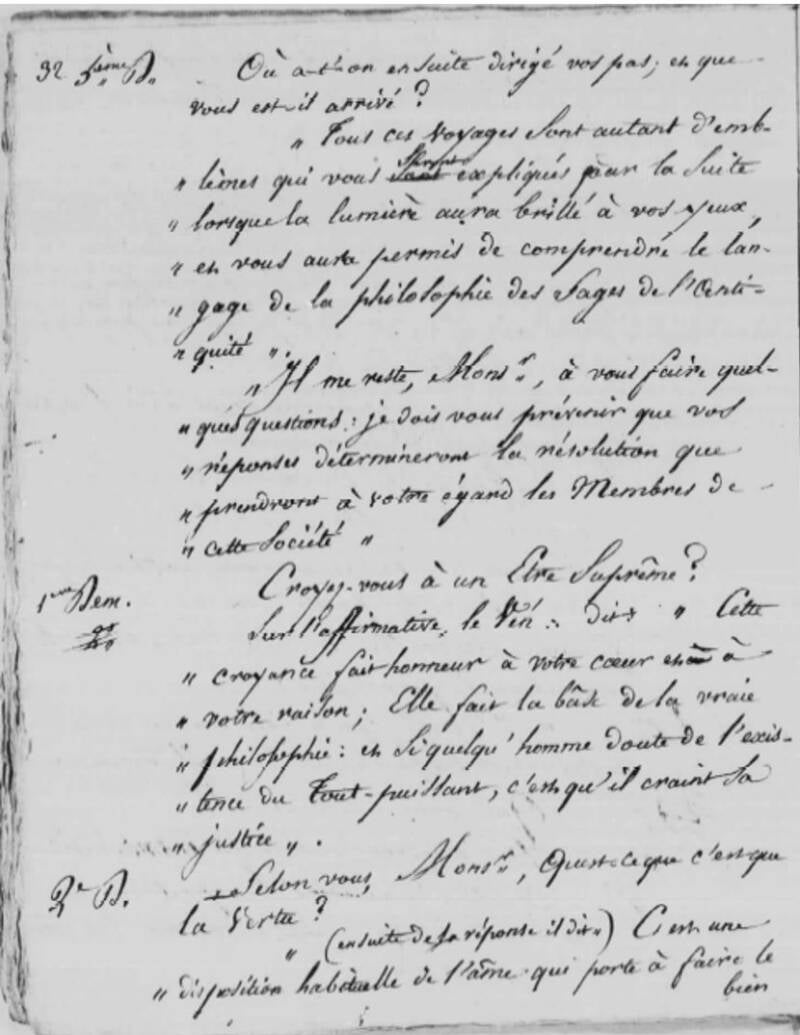 32 5ème D. Où a-t'on ensuite dirigé vos pas; et que
vous est-il arrivé ?
„ Tous ces voyages sont autant d'emb-
„ lèmes qui vous seront expliqués par la suite
„ lorsque la lumière aura brillé à vos yeux,
„ et vous aura permis de comprendre le lan-
„ gage de la philosophie des Sages de l'Anti-
„ quité „.
„ Il me reste, Monsr., à vous faire quel-
„ ques questions: je dois vous prévenir que vos
„ réponses détermineront la résolution que
„ prendront à votre égard les Membres de
„ cette Société „
1ere Dem. Croyez-vous à un Etre Suprême ?
Sur l'affirmative, le Vén∴ dit „ Cette
„ croyance fait honneur à votre cœur et à
„ votre raison; Elle fait la bâse de la vraie
„ philosophie: et si quelqu'homme doute de l'exis-
„ tence du Tout-puissant, c'est qu'il craint sa
„ justice „.
2e D. Selon vous, Monsr., Qu'est-ce que c'est que
la Vertu ?
„ (ensuite de la réponse il dit „) C'est une
„ disposition habituelle de l'âme qui porte à faire le
bien